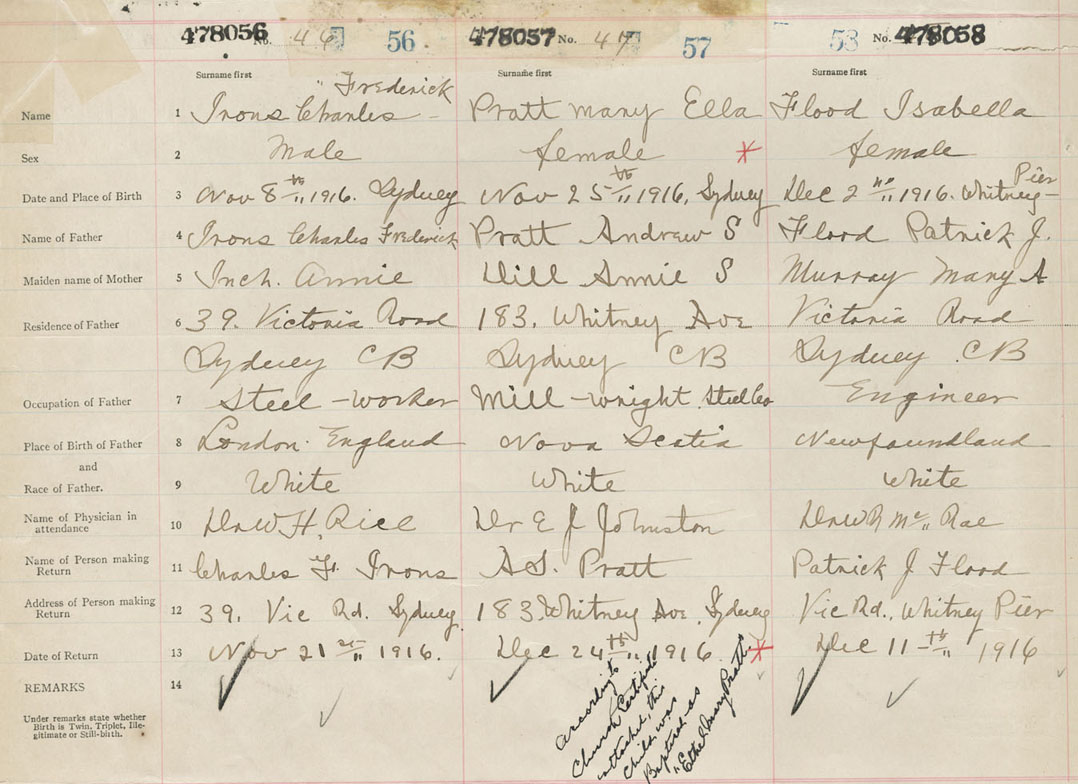 478056 No. 46 56 478057 No. 47 57 53 No. 478058
Surname first Surname first Surname first
" Frederick
Name 1 Irons Charles - Pratt Mary Ella Flood Isabella
Sex 2 Male female * female
Pier
Date and Place of Birth 3 Nov 8th 1916. Sydney Nov 25th 1916, Sydney Dec 2nd 1916. Whitney-
Name of Father 4 Irons Charles Frederick Pratt Andrew S Flood Patrick J.
Maiden name of Mother 5 Inch. Annie Dill Annie S Murray Mary A
Residence of Father 6 39. Victoria Road 183, Whitney Ave Victoria Road
Sydney CB Sydney CB Sydney CB
Occupation of Father 7 Steel-worker Mill-wright Steel Co Engineer
Place of Birth of Father 8 London England Nova Scotia Newfoundland
and
Race of Father. 9 White White White
Name of Physician in
attendance 10 Dr W. H. Rice Dr E J Johnston Dr W R Mc Rae
Name of Person making
Return 11 Charles F. Irons A S. Pratt Patrick J Flood
Address of Person making
Return 12 39. Vic Rd. Sydney. 183. Whitney Ave. Sydney Vic Rd., Whitney Pier
Date of Return 13 Nov 21st 1916. Dec 24th 1916 * Dec 11-th 1916
REMARKS 14
Under remarks state whether
Birth is Twin, Triplet, Ille-
gitimate or Still-birth.
According to
Church Certificate
attached, this
child was
Baptised as
"Ethel Mary Pratt"